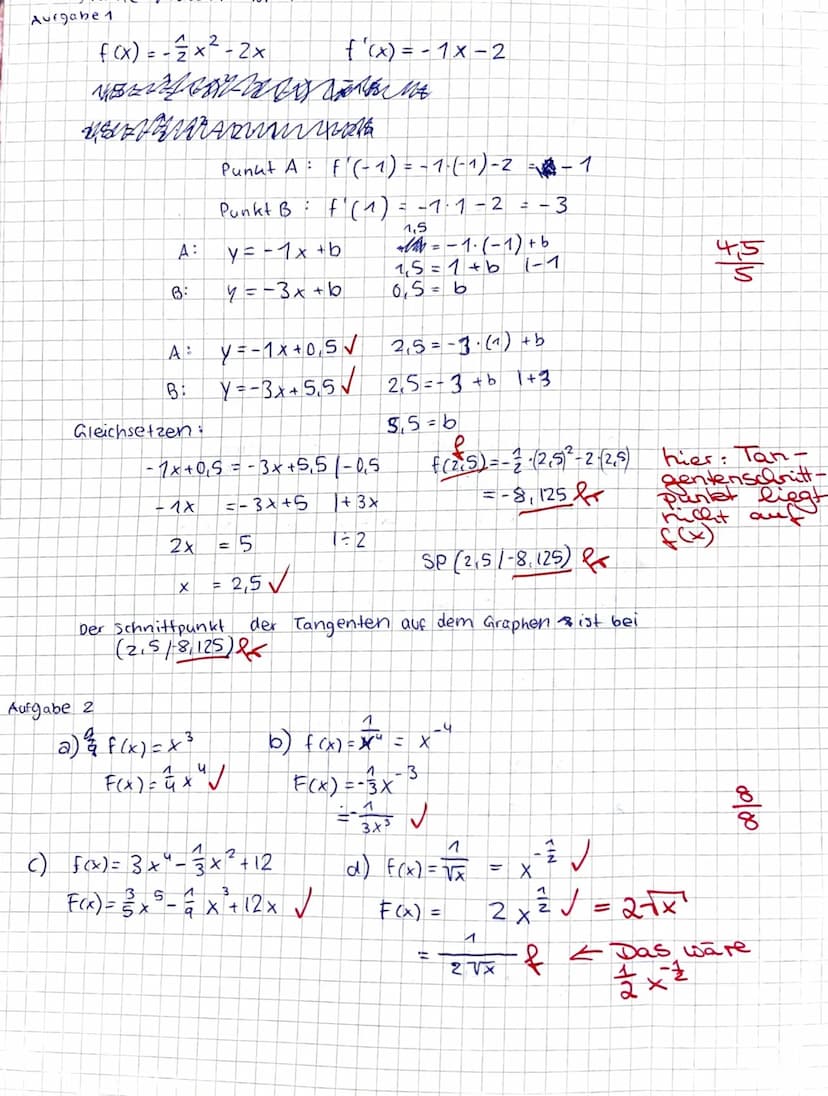 Aufgabe 1
f(x) = -1/2 x² - 2x f'(x) = -1x - 2
Punkt A: f'(-1) = -1·(-1)-2 = -1
Punkt B: f'(1) = -1·1-2 = -3
A: y = -1x+b 1,5 = -1·(-1)+b
1,5 = 1+b |-1
B: y = -3x+b 0,5 = b
4,5/5
A: y = -1x+0,5 ✓ 2,5 = -3·(1)+b
B: y = -3x+5,5 ✓ 2,5 = -3+b |+3
Gleichsetzen: 5,5 = b
f
-1x+0,5 = -3x+5,5 |-0,5 f(2,5) = -1/2·(2,5)²-2·(2,5)
-1x = -3x+5 |+3x = -8,125 fr
2x = 5 |÷2
x = 2,5 ✓ SP (2,5/-8,125) fr
hier: Tan-
gentenschnitt-
punkt liegt
nicht auf
f(x)
Der Schnittpunkt der Tangenten auf dem Graphen ist bei
(2,5/-8,125) fr
Aufgabe 2
a) f(x) = x³ b) f(x) = 1/x⁴ = x⁻⁴
F(x) = 1/4 x⁴ ✓ F(x) = -1/3 x⁻³
= -1/3x³ ✓
8/8
c) f(x) = 3x⁴ - 1/3 x² + 12 d) f(x) = 1/√x = x^-1/2 ✓
F(x) = 3/5 x⁵ - 1/9 x³ + 12x ✓ F(x) = 2x^1/2 ✓ = 2√x
= 1/2√x f ← Das wäre
1/2 x^-1/2